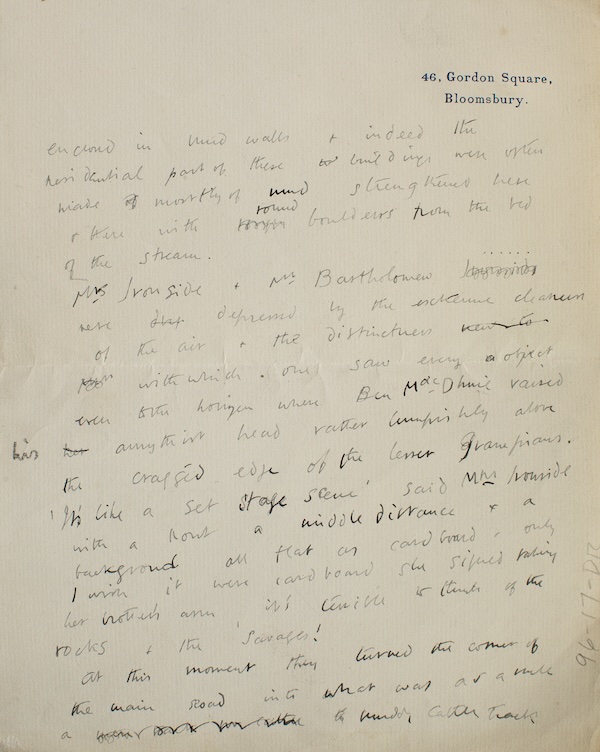 46, Gordon Square,
Bloomsbury.
enclosed in mud walls & indeed the
residential part of these buildings were often
made mostly of mud strengthened here
& there with round boulders from the bed
of the stream.
Mrs Ironside & Mr Bartholomew
were depressed by the extreme clearness
of the air & the distinctness
with which one saw every object
even to the horizon where Ben Mac Dhuie raised
his amythist head rather lumpishly above
the cragged edge of the lesser Grampians.
'It's like a set stage scene' said Mrs Ironside
with a front a middle distance & a
background all flat as cardboard, only
I wish it were cardboard she sighed taking
her brother's arm, it's terrible to think of the
rocks & the savages!
At this moment they turned the corner of
the main road into what was as a rule
a muddy cattle track
96-17-DR